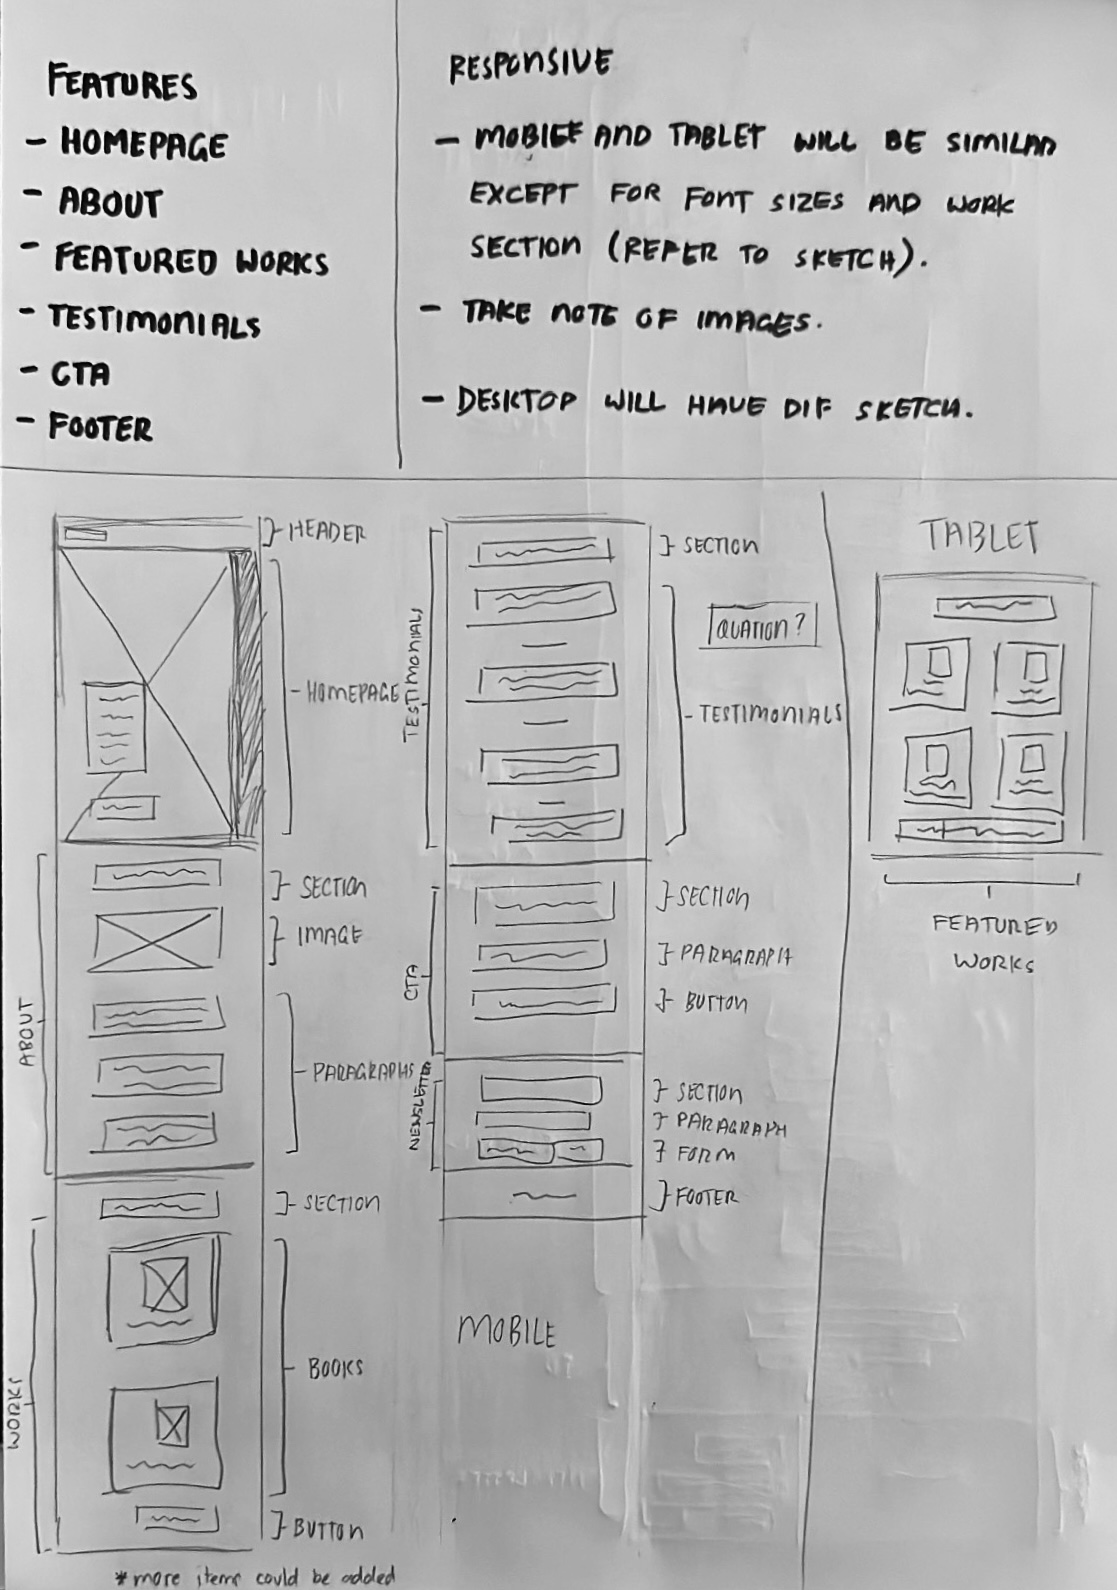 FEATURES
- HOMEPAGE
- ABOUT
- FEATURED WORKS
- TESTIMONIALS
- CTA
- FOOTER
RESPONSIVE
- MOBILE AND TABLET WILL BE SIMILAR
EXCEPT FOR FONT SIZES AND WORK
SECTION (REFER TO SKETCH).
- TAKE NOTE OF IMAGES.
- DESKTOP WILL HAVE DIF SKETCH.
HEADER
HOMEPAGE
ABOUT
SECTION
IMAGE
PARAGRAPHS
WORKS
SECTION
BOOKS
BUTTON
*more items could be added
TESTIMONIALS
SECTION
QUATION?
TESTIMONIALS
CTA
SECTION
PARAGRAPH
BUTTON
NEWSLETTER
SECTION
PARAGRAPH
FORM
FOOTER
MOBILE
TABLET
FEATURED
WORKS